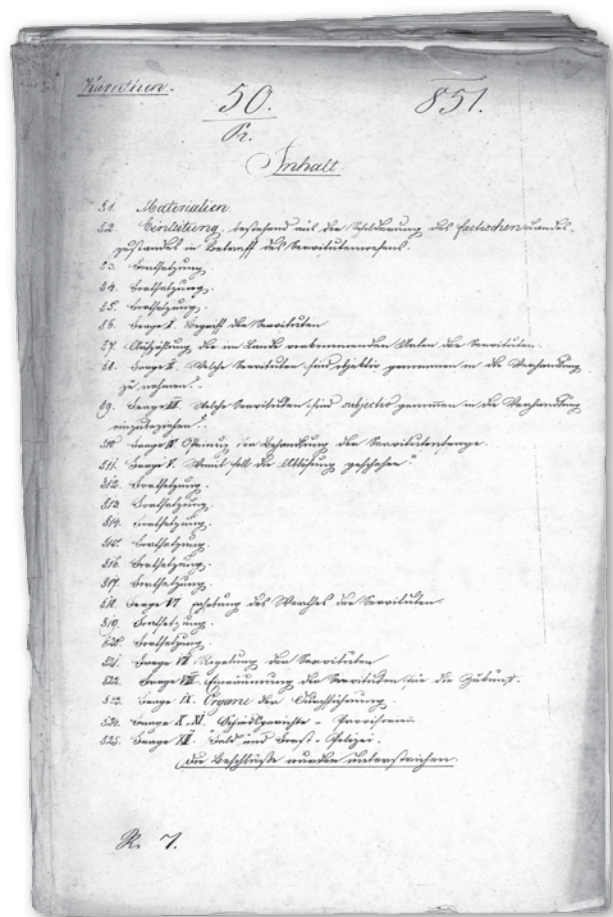 Kärnthen.
50. 851.
Pr.
Inhalt
§1. Materialien
§2. Einleitung, bestehend aus der Schilderung des factischen Landes-
zustandes in Betreff des Servitutenwesens.
§3. Fortsetzung.
§4. Fortsetzung.
§5. Fortsetzung.
§6. Frage I. Begriff der Servituten
§7. Aufzählung der im Lande vorkommenden Arten der Servituten.
§8. Frage II. Welche Servituten sind objectiv genommen in die Verhandlung
zu nehmen?
§9. Frage III. Welche Servituten sind subjectiv genommen in die Verhandlung
einzubeziehen?
§10 Frage IV der Behandlung der Servitutenfrage.
§11. Frage V. Womit soll die Ablösung geschehen?
§12. Fortsetzung.
§13. Fortsetzung.
§14. Fortsetzung.
§15. Fortsetzung.
§16. Fortsetzung.
§17. Fortsetzung.
§18. Frage VI Schätzung des Werthes der Servituten.
§19. Fortsetzung.
§20. Fortsetzung.
§21. Frage VII Regelung der Servituten
§22. Frage VIII. Einräumung der Servituten für die Zukunft.
§23. Frage IX. Organe der Durchführung.
§24. Frage X. XI. Schiedsgerichte - Provisorien
§25. Frage XII. Feld und Forst-Polizei.
Die Beschlüsse wurden unterstrichen.
R. 7.